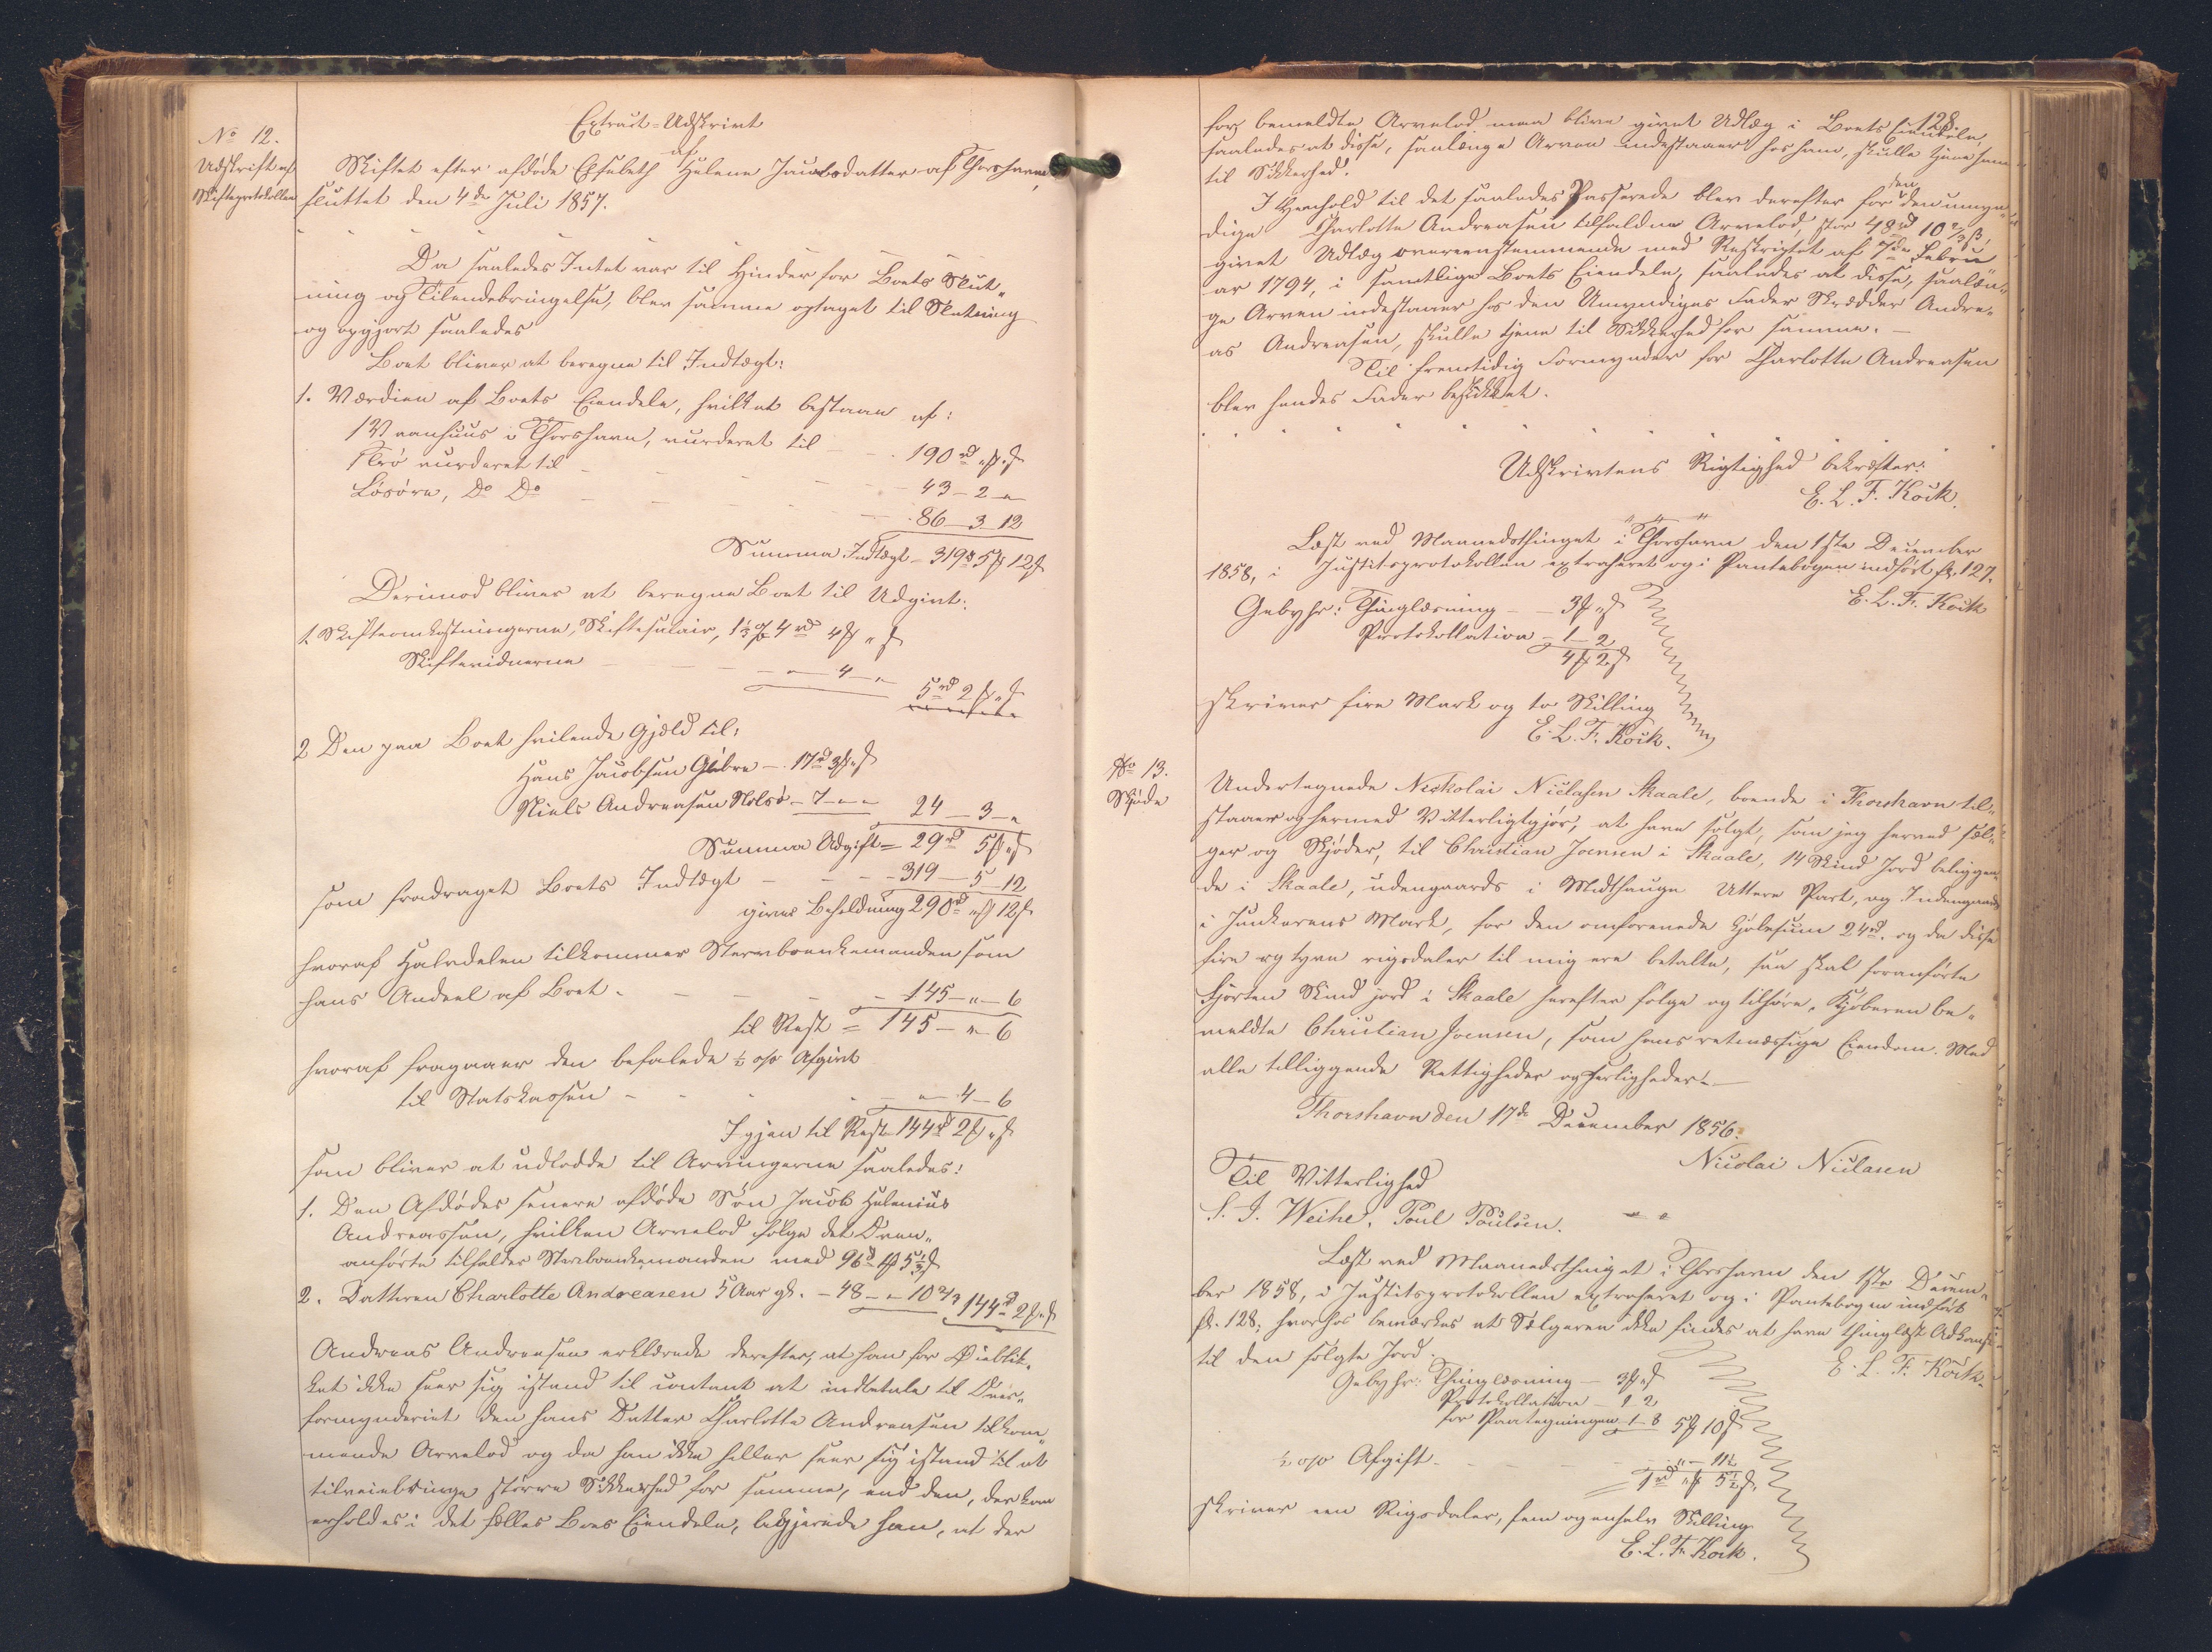 No 12.
Udskrift af
Skifteprotokollen
Extract-Udskrivt
af
Skiftet efter afdøde Elsebeth Helene Jacobsdatter af Thorshavn,
sluttet den 4de Juli 1857.
Da saaledes Intet var til Hinder for Boets Slut„
ning og Tilendebringelse, blev samme optaget til Slutning
og opgjort saaledes
Boet bliver at beregne til Indtægt:
1. Værdien af Boets Eiendele, hvilket bestaar af:
1 Vaanhuus i Thorshavn, vurderet til - - 190 rd „ „
1 Kro vurderet til - - - 43 - 2 - „
Løsøre, Do Do - - - 86 - 3 12
Summa Indtægt - 319 rd 5 12
Derimod bliver at beregne Boet til Udgivt:
1. Skifteomkostningerne, Skiftesalair, 1⅓ % 4 rd 4 „
Skiftevidnerne - - - „ - 4 - „
5 rd 2 „
2 Den paa Boet hvilende Gjæld til:
Hans Jacobsen Glibre - 17 rd 3 „
Niels Andreasen Nolsø - 7 - „ - „ 24 - 3 - „
Summa Udgift = 29 rd 5 „
som fradraget Boets Indtægt - - - 319 - 5 - 12
giver Beholdning 290 rd „ 12
hvoraf Halvdelen tilkommer Stervboenkemanden som
hans Andeel af Boet - - - 145 - „ - 6
til Rest = 145 - „ - 6
hvoraf fragaaer den befalede ½ o/o Afgivt
til Statskassen - - „ - 4 - 6
Igjen til Rest 144 rd 2 „
som bliver at udlodde til Arvingerne saaledes:
1. Den Afdødes senere afdøde Søn Jacob Helenius
Andreassen, hvilken Arvelod ifølge det Oven„
anførte tilfalder Stervboenkemanden med 96 rd 1 5⅓
2. Datteren Charlotte Andreasen 5 Aar gl. - 48 - „ 10⅔ 144 rd 2 „
Andreas Andreasen erklærede derefter, at han for Øieblik„
ket ikke seer sig istand til contant at indbetale til Over„
formynderiet den hans Datter Charlotte Andreasen tilkom„
mende Arvelod og da han ikke heller seer sig istand til at
tilveiebringe større Sikkerhed for samme, end den, der kan
erholdes i det fælles Boes Eiendele, begjerede han, at der
128.
for bemeldte Arvelod maa blive givet Udlæg i Boets Eiendele,
saaledes at disse, saalænge Arven indestaaer hos ham, skulle tjene ham
til Sikkerhed.
I Henhold til det saaledes Passerede blev derefter for den umyn„
den
dige Charlotte Andreasen tilfaldne Arvelod, stor 48 rd 10⅔ ß,
givet Udlæg overeensstemmende med Reskriptet af 7de Febru„
ar 1794, i samtlige Boets Eiendele, saaledes at disse, saalæn„
ge Arven indestaaer hos den Umyndiges Fader Skrædder Andre„
as Andreasen, skulle tjene til Sikkerhed for samme. -
Til fremtidig Formynder for Charlotte Andreasen
blev hendes Fader beskikket.
Udskrivtens Rigtighed bekræfter:
E. L. F. Kock.
Læst ved Maanedsthinget i Thorshavn den 1ste December
1858, i Justitsprotokollen extraheret og i Pantebogen indført fl. 127.
E. L. Fr. Kock
Gebyhr: Thinglæsning - - 3 „
Protokollation - 1 - 2
4 2
skriver fire Mark og to Skilling
E. L. Fr. Kock.
No 13.
Skjøde
Undertegnede Nickolai Niclasen Skaale, boende i Thorshavn til„
staaer og hermed Vitterligtgjør, at have solgt, som jeg herved sæl„
ger og Skjøder, til Christian Joensen i Skaale, 14 Skind Jord beliggen„
de i Skaale, udengaards i Midthauge Uttere Part, og Indengaards
i Junkerens Mark, for den omforenede Kjøbesum 24 rd. og da disse
fire og tyve rigsdaler til mig ere betalte, saa skal foranførte
fjorten Skind jord i Skaale herefter følge og tilhøre, Kjøberen be„
meldte Christian Joensen, som hans retmæssige Eiendom. Med
alle tilliggende Rettigheder og Herligheder. -
Thorshavn den 17de December 1856.
Nicolai Niclasen
Til Vitterlighed
S. J. Weihe. Poul Poulsen.
Læst ved Maanedsthinget i Thorshavn den 1ste Decem„
ber 1858, i Justitsprotokollen extraheret og i Pantebogen indført
fl. 128; hvorhos bemærkes at Sælgeren ikke findes at have thinglæst Adkomst
til den solgte Jord.
E. L. Fr. Kock.
Gebyhr: Thinglæsning - 3 „
Protokollation - 1 2
for Paategningen - 1 - 8 5 10
½ o/o Afgift - - - „ - 11½
1 rd „ 5½
skriver een Rigsdaler, fem og en halv Skilling
E. L. Fr. Kock.